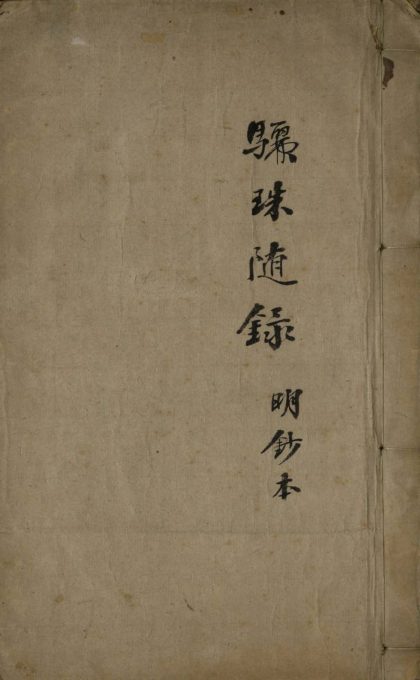 驪珠随錄
明鈔本